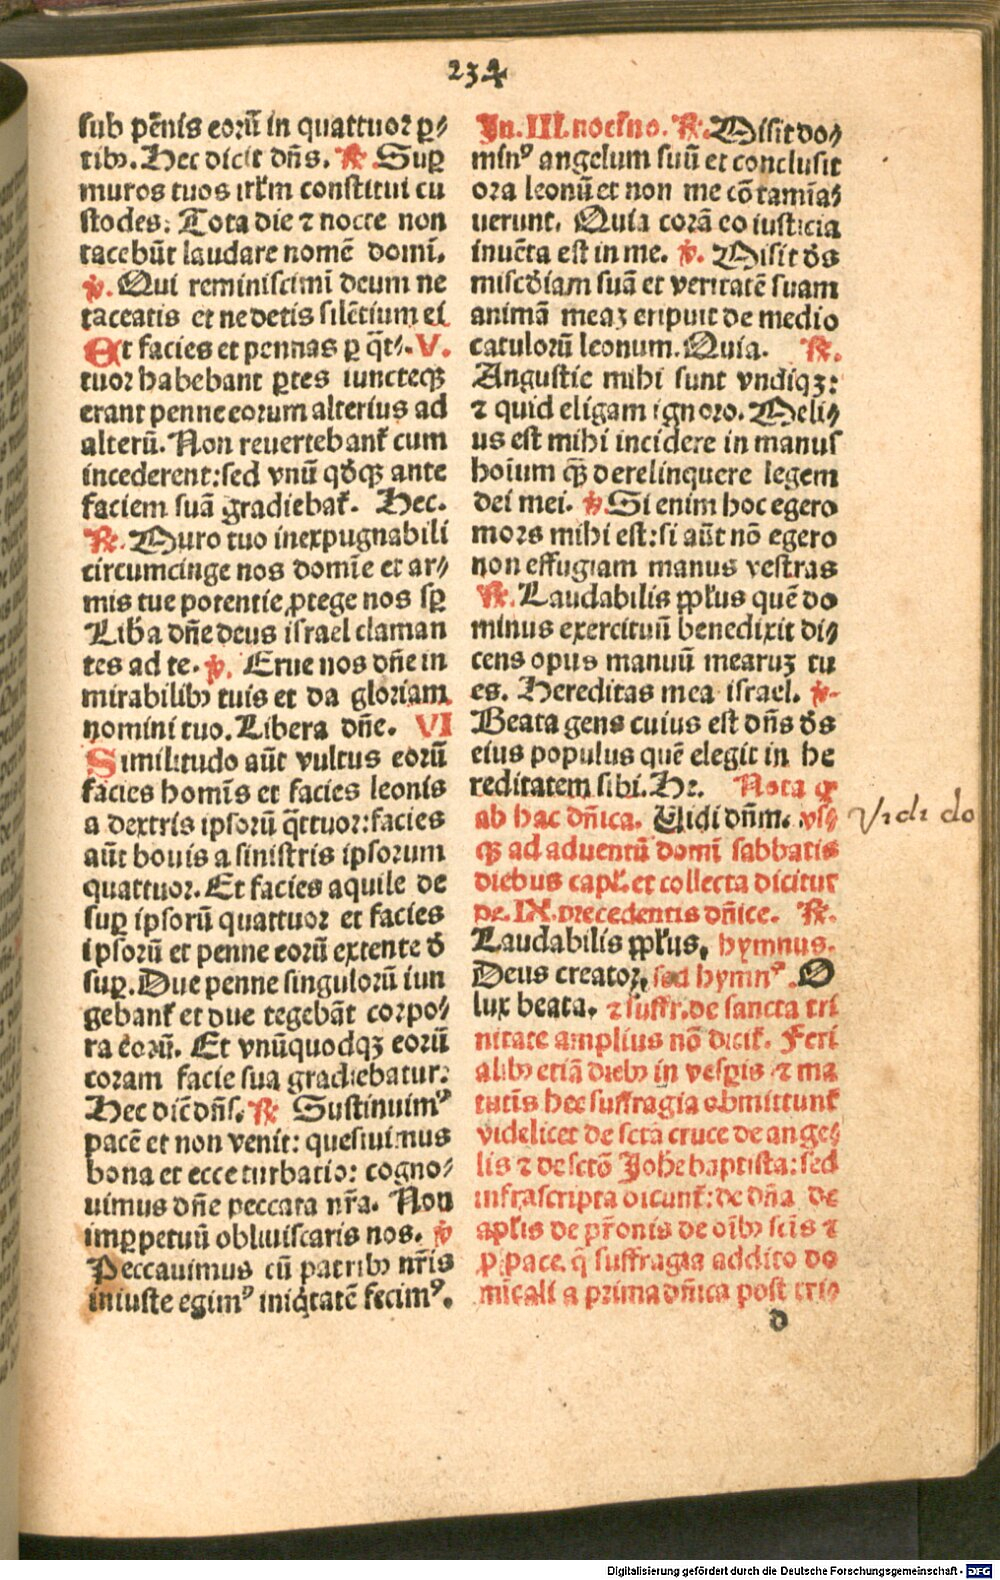 234
sub pēnis eorū in quattuor ꝑ⸗
tibꝰ. Hec dicit dn̄s. ℟ Suꝑ
muros tuos irl̄m constitui cu
stodes: Tota die ⁊ nocte non
tacebūt laudare nomē domī.
℣. Qui reminiscimī deum ne
taceatis et ne detis silētium ei
Et facies et pennas ꝑ q̄t⸗. V.
tuor habebant ꝑtes iuncteqꝫ
erant penne eorum alterius ad
alterū. Non reuertebant̄ cum
incederent: sed vnū qḋqꝫ ante
faciem suā gradiebat̄. Hec.
℟. Muro tuo inexpugnabili
circumcinge nos domīe et ar⸗
mis tue potentie ꝓtege nos sꝑ
Liba dn̄e deus israel claman
tes ad te. ℣. Erue nos dn̄e in
mirabilibꝰ tuis et da gloriam
nomini tuo. Libera dn̄e. VI
Similitudo aūt vultus eorū
facies homīs et facies leonis
a dextris ipsorū q̄ttuor: facies
aūt bouis a sinistris ipsorum
quattuor. Et facies aquile de
suꝑ ipsorū quattuor et facies
ipsorū et penne eorū extente ḋ
suꝑ. Due penne singulorū iun
gebant̄ et due tegebāt corpo⸗
ra eorū. Et vnūquodqꝫ eorū
coram facie sua gradiebatur:
Hec dic̄ dn̄s. ℟ Sustinuimꝰ
pacē et non venit: quesiuimus
bona et ecce turbatio: cogno⸗
uimus dn̄e peccata nr̄a. Non
imꝑpetuū obliuiscaris nos. ℣
Peccauimus cū patribꝰ nr̄is
iniuste egimꝰ iniq̇tatē fecimꝰ.
In. III. noct̄no. ℟. Misit do⸗
minꝰ angelum suū et conclusit
ora leonū et non me cōtamīa⸗
uerunt. Quia corā eo iusticia
inuēta est in me. ℣. Misit dꝰs
misc̄diam suā et veritatē suam
animā meaꝫ eripuit de medio
catulorū leonum. Quia. ℟.
Angustie mihi sunt vndiqꝫ:
⁊ quid eligam ignoro. Meli⸗
us est mihi incidere in manus
hoīum qꝫ derelinquere legem
dei mei. ℣ Si enim hoc egero
mors mihi est: si aūt nō egero
non effugiam manus vestras
℟. Laudabilis ppl̄us quē do
minus exercituū benedixit di⸗
cens opus manuū mearuꝫ tu
es. Hereditas mea israel. ℣.
Beata gens cuius est dn̄s dꝰs
eius populus quē elegit in he
reditatem sibi. He. Nota ꝙ
ab hac dn̄ica. Uidi dn̄m. vs⸗
qꝫ ad aduentū domī sabbatis
diebus capl̄. et collecta dicitur
pe. IX. precedentis dn̄ice. ℟.
Laudabilis ppl̄us. hymnus.
Deus creator. sed hymnꝰ. O
lux beata. ⁊ suffr. de sancta tri
nitate amplius nō dicit̄. Feri
alibꝰ etiā diebꝰ in vesꝑis ⁊ ma
tutīs hec suffragia obmittunt̄
videlicet de sctā cruce de ange⸗
lis ⁊ de sctō Johē baptista: sed
infrascripta dicunt̄: de dn̄a de
apl̄is de pr̄onis de oībꝰ scīs ⁊
ꝓ pace. q̄ suffragia addito do
micali a prima dn̄ica post tri⸗
d
Vidi do
Digitalisierung gefördert durch die Deutsche Forschungsgemeinschaft - DFG